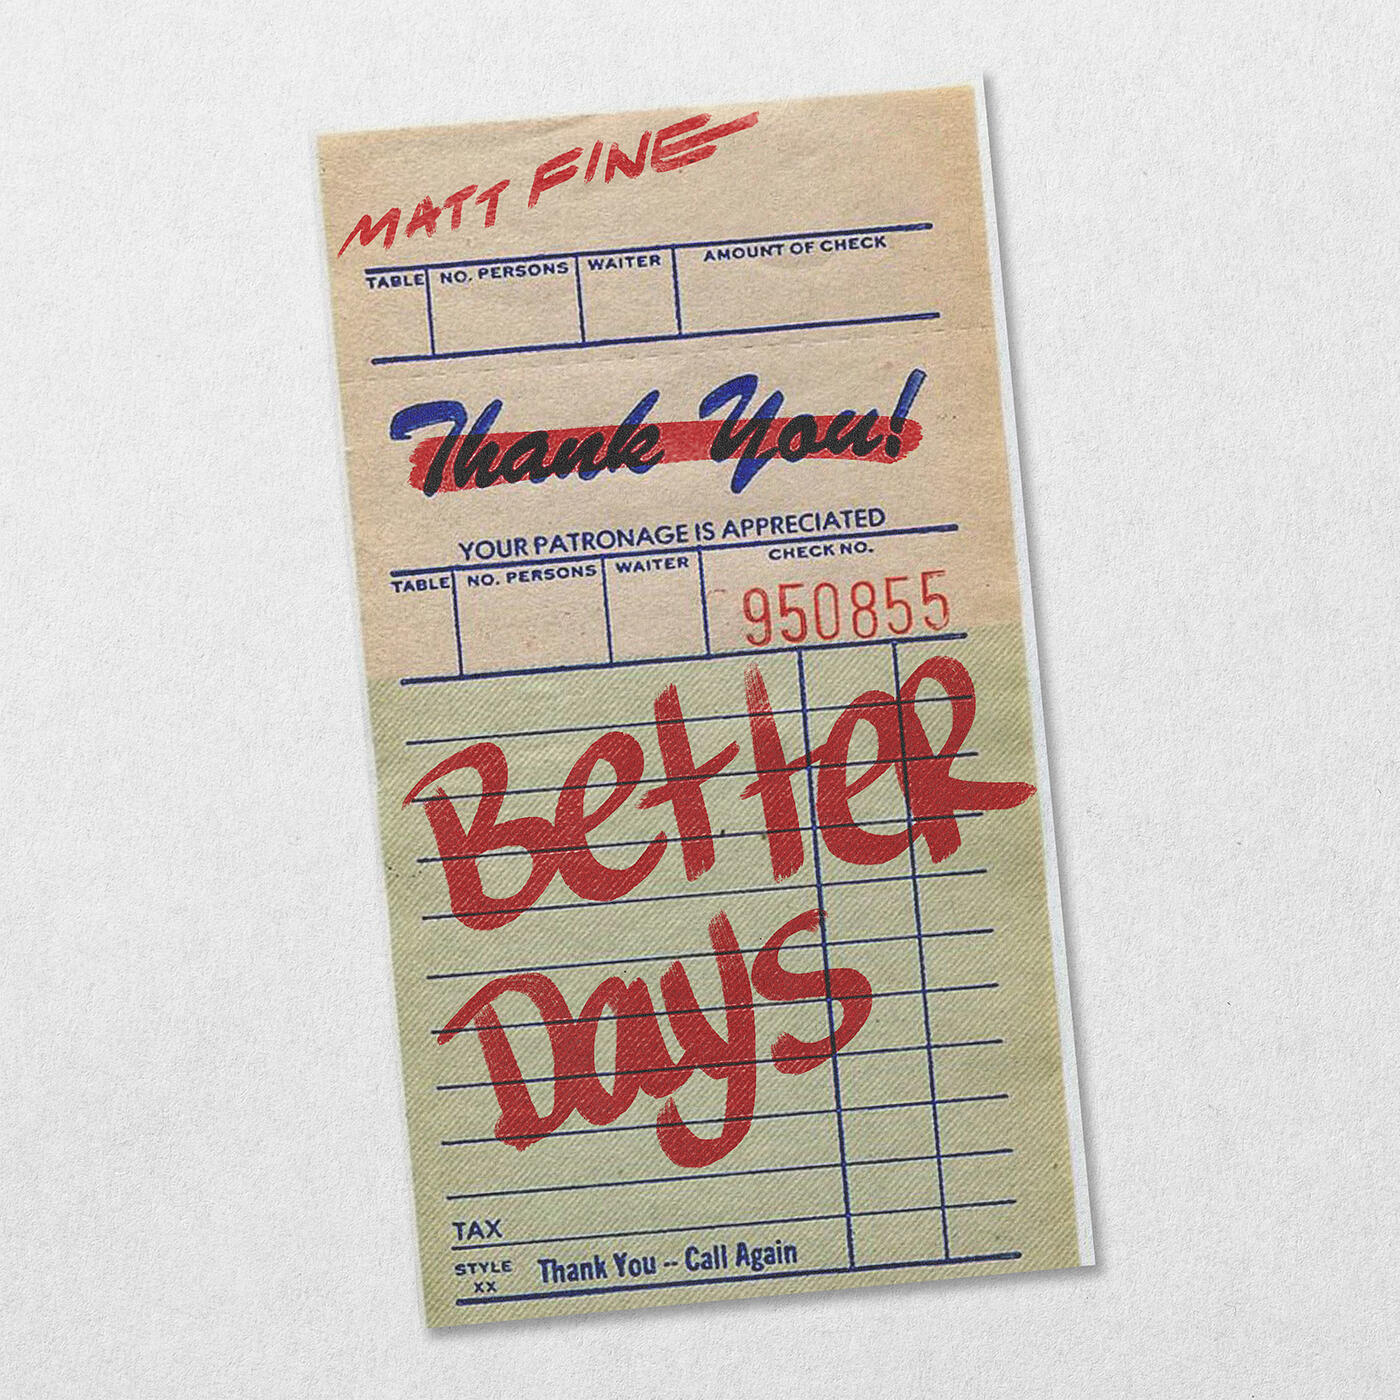 MATT FINE
TABLE NO. PERSONS WAITER AMOUNT OF CHECK
Thank You!
YOUR PATRONAGE IS APPRECIATED
TABLE NO. PERSONS WAITER CHECK NO.
950855
Better
Days
TAX
STYLE XX Thank You -- Call Again